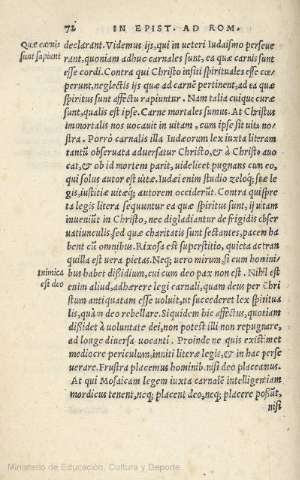 72 IN EPIST. AD ROM.
Quæ carnis declarant. Videmus ijs, qui in ueteri Iudaismo perseue
sunt sapiunt rant, quoniam adhuc carnales sunt, ea quæ carnis sunt
esse cordi. Contra qui Christo insiti spirituales esse cœ
perunt, neglectis ijs quæ ad carnẽ pertinent, ad ea quæ
spiritus sunt affectu rapiuntur. Nam talia cuique curæ
sunt, qualis est ipse. Carne mortales sumus. At Christus
immortalis nos uocauit in uitam, cum ipse sit uita no⸗
stra. Porrò carnalis illa Iudæorum lex iuxta literam
tantũ obseruata aduersatur Christo, & à Christo auo
cat, & ob id mortem parit, uidelicet pugnans cum eo,
qui solus autor est uitæ. Iudæi enim studio zeloq́; suæ le
gis, iustitiæ uitæq́; autorem occiderũt. Contra qui spre
ta legis litera sequuntur ea quæ spiritus sunt, ij uitam
inueniũt in Christo, nec digladiantur de frigidis obser
uatiunculis, sed quæ charitatis sunt sectantes, pacem ha
bent cũ omnibus. Rixosa est superstitio, quieta ac tran
quilla est uera pietas. Neq; uero mirum, si cum homini
Inimica bus habet dissidium, cui cum deo pax non est. Nihil est
est deo enim aliud, adhærere legi carnali, quam deus per Chri
stum antiquatam esse uoluit, ut succederet lex spiritua
lis, quàm deo rebellare. Siquidem hic affectus, quoniam
dissidet à uoluntate dei, non potest illi non repugnare,
ad longe diuersa uocanti. Proinde ne quis existimet
mediocre periculum, inniti literæ legis, & in hac perse
uerare. Frustra placemus hominib. nisi deo placeamus.
At qui Mosaicam legem iuxta carnalẽ intelligentiam
mordicus tenent, neq; placent deo, neq; placere possũt,
nisi
Ministerio de Educación, Cultura y Deporte